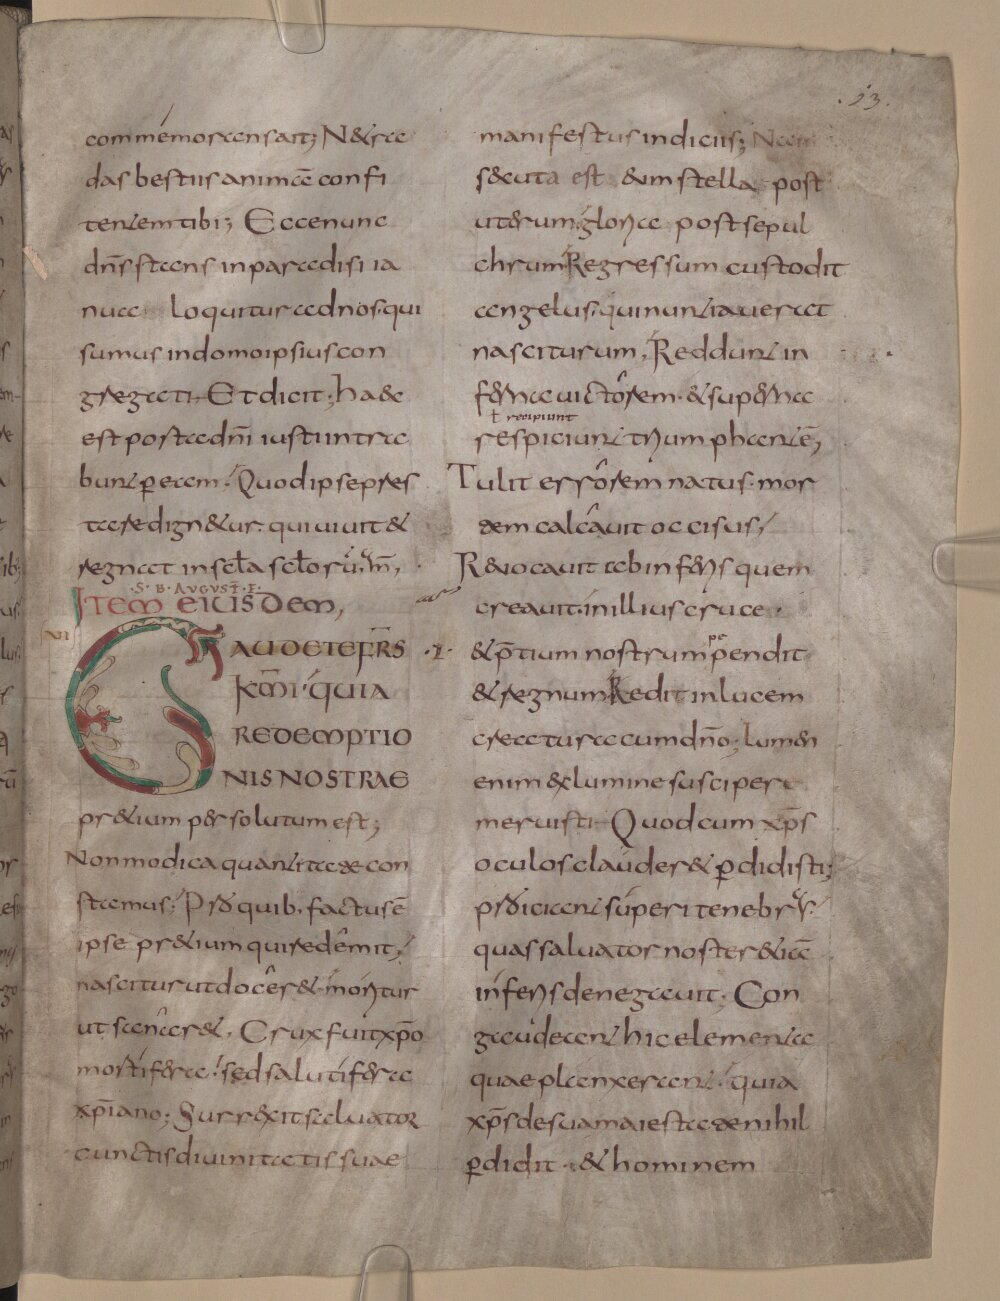 .53.
commémorans ait; Netra
das bestiis animā confi
tentem tibi; Ecce nunc
dn̄s stans in paradisi ia
nua loquitur ad nos. qui
sumus in domo ipsius con
gregati. Et dicit; haec
est porta dn̄i iusti intra
bunt ꝑ eam; Quod ipse pres
tare dignetur. qui uiuit &
regnat in sc̄la sc̄lorū. am̄,
.S. B. AVGVST̄. E.
ITEM EIUSDEM,
GAUDETE FR̄S
K̄MI. QUIA
REDEMPTIO
NIS NOSTRAE
pretium persolutum est;
Non modica quantitate con
stamus; Pro quib. factus ē
ipse pretium qui redemit;
nascitur ut doceret. moritur
ut sanaret. Crux fuit xp̄o
mortifera; sed salutifera
xp̄iano; Surrexit saluator
cunctis diuinitatis suae
manifestus indiciis; Nam
secuta est etiam stella post
uterum. gloria post sepul
chrum Regressum custodit
angelus. qui nuntiauerat
nasciturum, Reddunt in
ferna uictorem. & superna
ł recipiunt
respiciunt triumphantē,
Tulit errorem natus. mor
tem calcauit occisus,
Reuocauit ab inferis quem
creauit. in illius cruce.
.I. & p̄tium nostrum pependit
& regnum Redit in lucem
creatura cum dn̄o; Lumen
enim ex lumine suscipere
meruisti. Quod cum xp̄s
oculos clauderet ꝑdidisti;
proiciant superi tenebras.
quas saluator noster etiā
inferis denegauit. Con
gaudeant hic elementa
quae planxerant. quia
xp̄s de sua maiestate nihil
ꝑdidit. & hominem